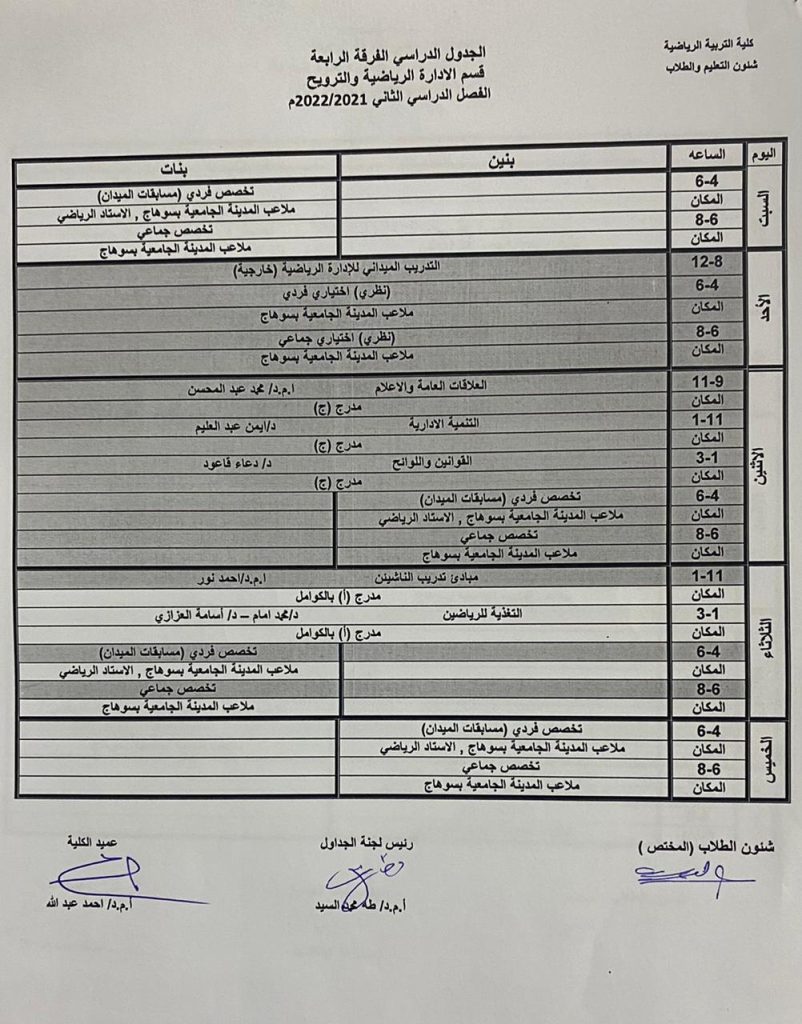 كلية التربية الرياضية
شئون التعليم والطلاب
الجدول الدراسي الفرقة الرابعة
قسم الادارة الرياضية والترويح
الفصل الدراسي الثاني 2022/2021م
اليوم الساعه بنين بنات
السبت
6-4 تخصص فردي (مسابقات الميدان)
المكان ملاعب المدينة الجامعية بسوهاج , الاستاد الرياضي
8-6 تخصص جماعي
المكان ملاعب المدينة الجامعية بسوهاج
الأحد
12-8 التدريب الميداني للإدارة الرياضية (خارجية)
6-4 (نظري) اختياري فردي
المكان ملاعب المدينة الجامعية بسوهاج
8-6 (نظري) اختياري جماعي
المكان ملاعب المدينة الجامعية بسوهاج
الاثنين
11-9 العلاقات العامة والاعلام ا.م.د/ محمد عبد المحسن
المكان مدرج (ج)
1-11 التنمية الادارية د/ايمن عبد العليم
المكان مدرج (ج)
3-1 القوانين واللوائح د/ دعاء قاعود
المكان مدرج (ج)
6-4 تخصص فردي (مسابقات الميدان)
المكان ملاعب المدينة الجامعية بسوهاج , الاستاد الرياضي
8-6 تخصص جماعي
المكان ملاعب المدينة الجامعية بسوهاج
الثلاثاء
1-11 مبادئ تدريب الناشيئن ا.م.د/احمد نور
المكان مدرج (أ) بالكوامل
3-1 التغذية للرياضين د/محمد امام – د/ أسامة العزازي
المكان مدرج (أ) بالكوامل
6-4 تخصص فردي (مسابقات الميدان)
المكان ملاعب المدينة الجامعية بسوهاج , الاستاد الرياضي
8-6 تخصص جماعي
المكان ملاعب المدينة الجامعية بسوهاج
الخميس
6-4 تخصص فردي (مسابقات الميدان)
المكان ملاعب المدينة الجامعية بسوهاج , الاستاد الرياضي
8-6 تخصص جماعي
المكان ملاعب المدينة الجامعية بسوهاج
شئون الطلاب (المختص )
رئيس لجنة الجداول
أ.م.د/ طه محمد السيد
عميد الكلية
أ.م.د/ احمد عبد الله